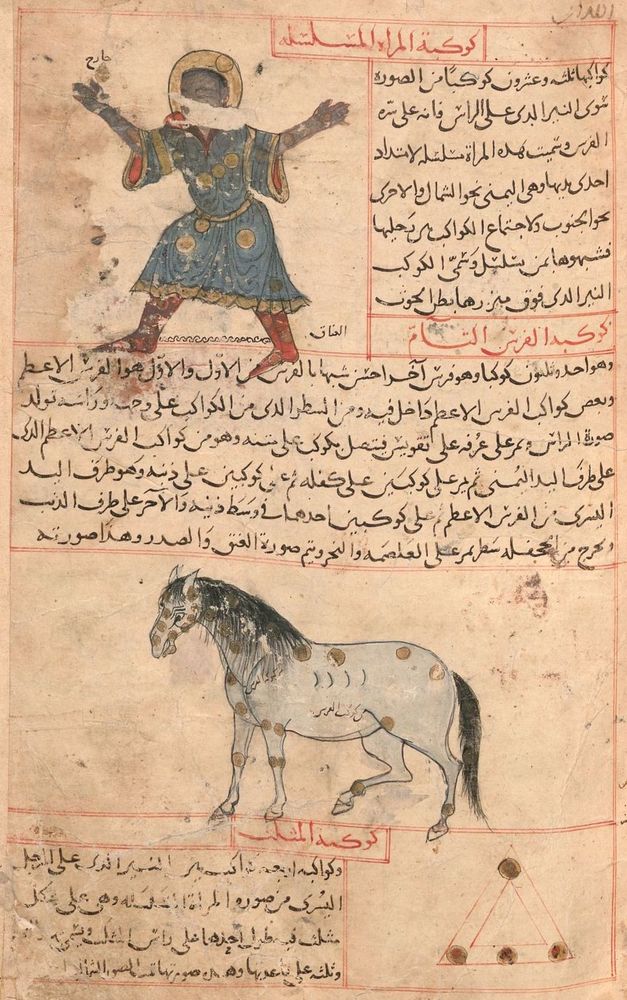 كوكبة المراة المسلسلة
كواكبها ثلثة وعشرون كوكبا من الصورة
سوى النير الذى على الراس فانه على سرة
الفرس وسميت بهذه المراة مسلسلة لامتداد
احدى يديها وهى اليمنى نحو الشمال والاخرى
نحو الجنوب ولاجتماع الكواكب بين رجليها
فشبهوها بمن سلسل وسمى الكوكب
النير الذى فوق ميزرها بطن الحوت
العناق
كوكبة الفرس التام
وهو احد وثلثون كوكبا وهو فرس آخر احسن شبها بالفرس من الاول والاول هو الفرس الاعظم
وبعض كواكب الفرس الاعظم داخل فيه ومن السطر الذى من الكواكب على وجهه وراسه تولد
صورة الراس ويمر على عرفه على تقويس فيتصل بكوكب على متنه وهو من كواكب الفرس الاعظم الذى
على طرف اليد اليمنى ثم يمر على كوكبين على كفله ثم على كوكبين على ذنبه وهو طرف اليد
اليسرى من الفرس الاعظم ثم على كوكبين احدهما فى وسط ذنبه والآخر على طرف الذنب
ويخرج من الجحفلة سطر يمر على الغلصمة والنحر ويتم صورة العنق والصدر وهذا صورته
كوكبة المثلث
وكواكبه اربعة كواكب بين النير الذى على الرجل
اليسرى من صورة المراة المسلسلة وهى على شكل
مثلث فيه طول احدها على راس المثلث
وثلثة على قاعدتها وهذه صورتها